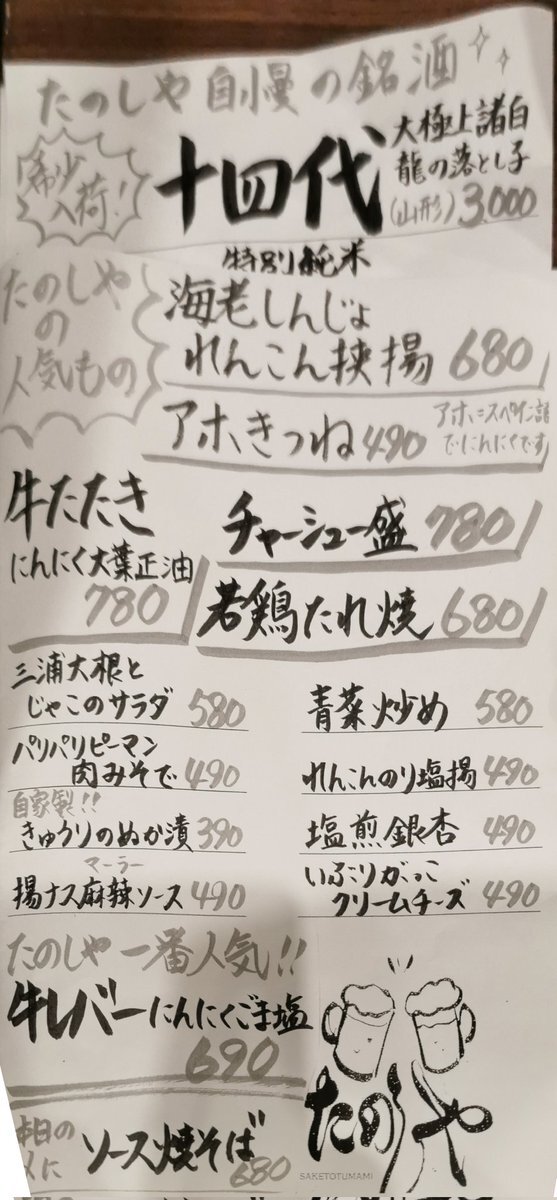 たのしや自慢の銘酒
希少入荷!
十四代
大極上諸白
龍の落とし子
(山形) 3,000
特別純米
たのしやの人気もの
海老しんじょ
れんこん挟揚 680
アホきつね 490
アホ=スペイン語
でにんにくです
牛たたき
にんにく大葉正油
780
チャーシュー盛 780
若鶏たれ焼 680
三浦大根と
じゃこのサラダ 580
パリパリピーマン
肉みそで 490
自家製!!
きゅうりのぬか漬 390
マーラー
揚ナス麻辣ソース 490
青菜炒め 580
れんこんのり塩揚 490
塩煎銀杏 490
いぶりがっこ
クリームチーズ 490
たのしや一番人気!!
牛レバーにんにくごま塩
690
本日の
〆に
ソース焼そば
680
たのしや
SAKETOTUMAMI